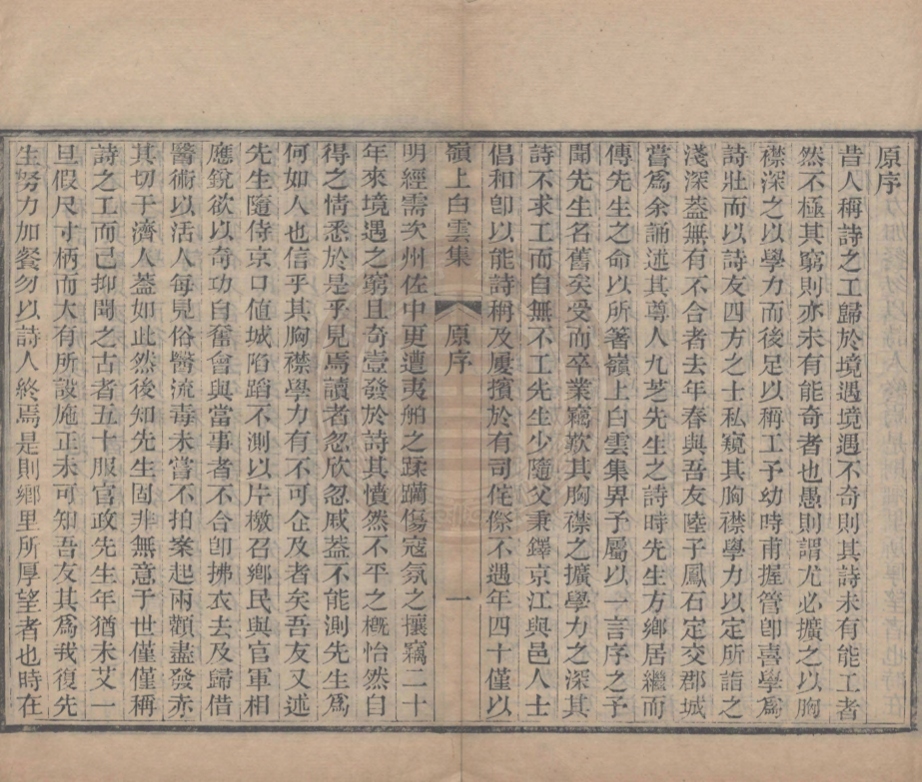 原序
昔人稱詩之工歸於境遇境遇不奇則其詩未有能工者
然不極其窮則亦未有能奇者也愚則謂尤必擴之以胸
襟深之以學力而後足以稱工予幼時甫握管卽喜學爲
詩壯而以詩友四方之士私窺其胸襟學力以定所詣之
淺深葢無有不合者去年春與吾友陸子鳳石定交郡城
嘗爲余誦述其尊人九芝先生之詩時先生方鄉居繼而
傳先生之命以所著嶺上白雲集畀予屬以一言序之予
聞先生名舊矣受而卒業竊歎其胸襟之擴學力之深其
詩不求工而自無不工先生少隨父秉鐸京江與邑人士
倡和卽以能詩稱及屢擯於有司侘傺不遇年四十僅以
嶺上白雲集
原序
一
明經需次州佐中更遭夷舶之蹂躪傷寇氛之攘竊二十
年來境遇之窮且奇壹發於詩其憤然不平之槪怡然自
得之情悉於是乎見焉讀者忽欣忽戚葢不能測先生爲
何如人也信乎其胸襟學力有不可企及者矣吾友又述
先生隨侍京口値城陷蹈不測以片檄召鄉民與官軍相
應銳欲以奇功自奮會與當事者不合卽拂衣去及歸借
醫術以活人每見俗醫流毒未嘗不拍案起兩顴盡發赤
其切于濟人葢如此然後知先生固非無意于世僅僅稱
詩之工而已抑聞之古者五十服官政先生年猶未艾一
旦假尺寸柄而大有所設施正未可知吾友其爲我復先
生努力加餐勿以詩人終焉是則鄉里所厚望者也時在